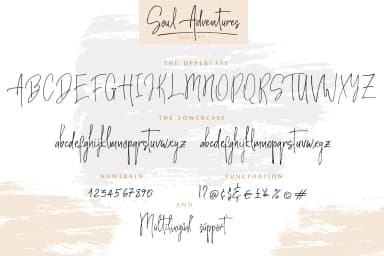 Soul Adventures
SCRIPT
THE UPPERCASE
ABCDEFGHIJKLMNOPQRSTUVWXYZ
THE LOWERCASE
abcdefghijklmnopqrstuvwxyz abcdefghijklmnopqrstuvwxyz
NUMERALS PUNCTUATION
1234567890 !?@¢$& € £ % © #
AND
Multilingual support